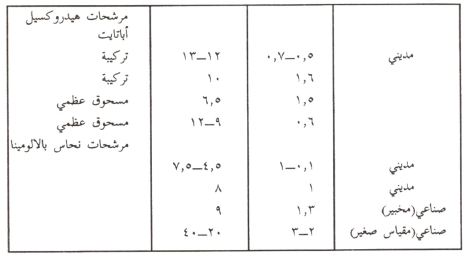 مرشحات هيدروكسيل
أباتايت
تركيبة ١٢_١٣ ٠,٥_٠,٧ مديني
تركيبة ١٠ ١,٦
مسحوق عظمي ٦,٥ ١,٥
مسحوق عظمي ٩_١٢ ٠,٦
مرشحات نحاس بالالومينا
٤,٥_٧,٥ ٠,١_١ مديني
٨ ١ مديني
٩ ١,٣ صناعي(مخبير)
٢٠_٤٠ ٢_٣ صناعي(مقياس صغير)